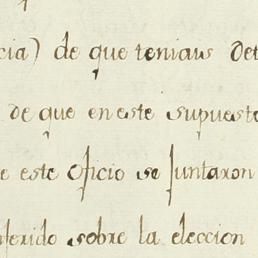 cia) de que teniais det
de que en este supuesto
e este oficio se juntaron
ferido sobre la eleccion